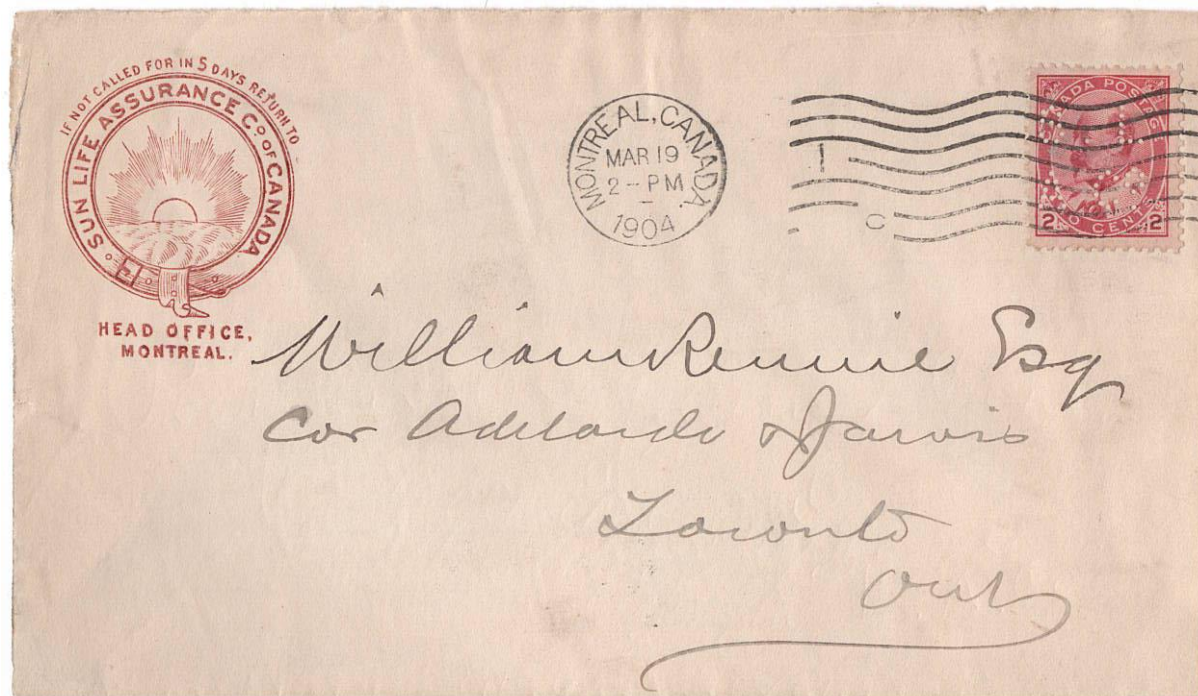 IF NOT CALLED FOR IN 5 DAYS RETURN TO
SUN LIFE ASSURANCE Co OF CANADA
HEAD OFFICE,
MONTREAL.
MONTREAL, CANADA.
MAR 19
2 - PM
1904
1
C
CANADA POSTAGE
2 TWO CENTS 2
William Rennie Esq
Cor Adelaide & Jarvis
Toronto
Ont